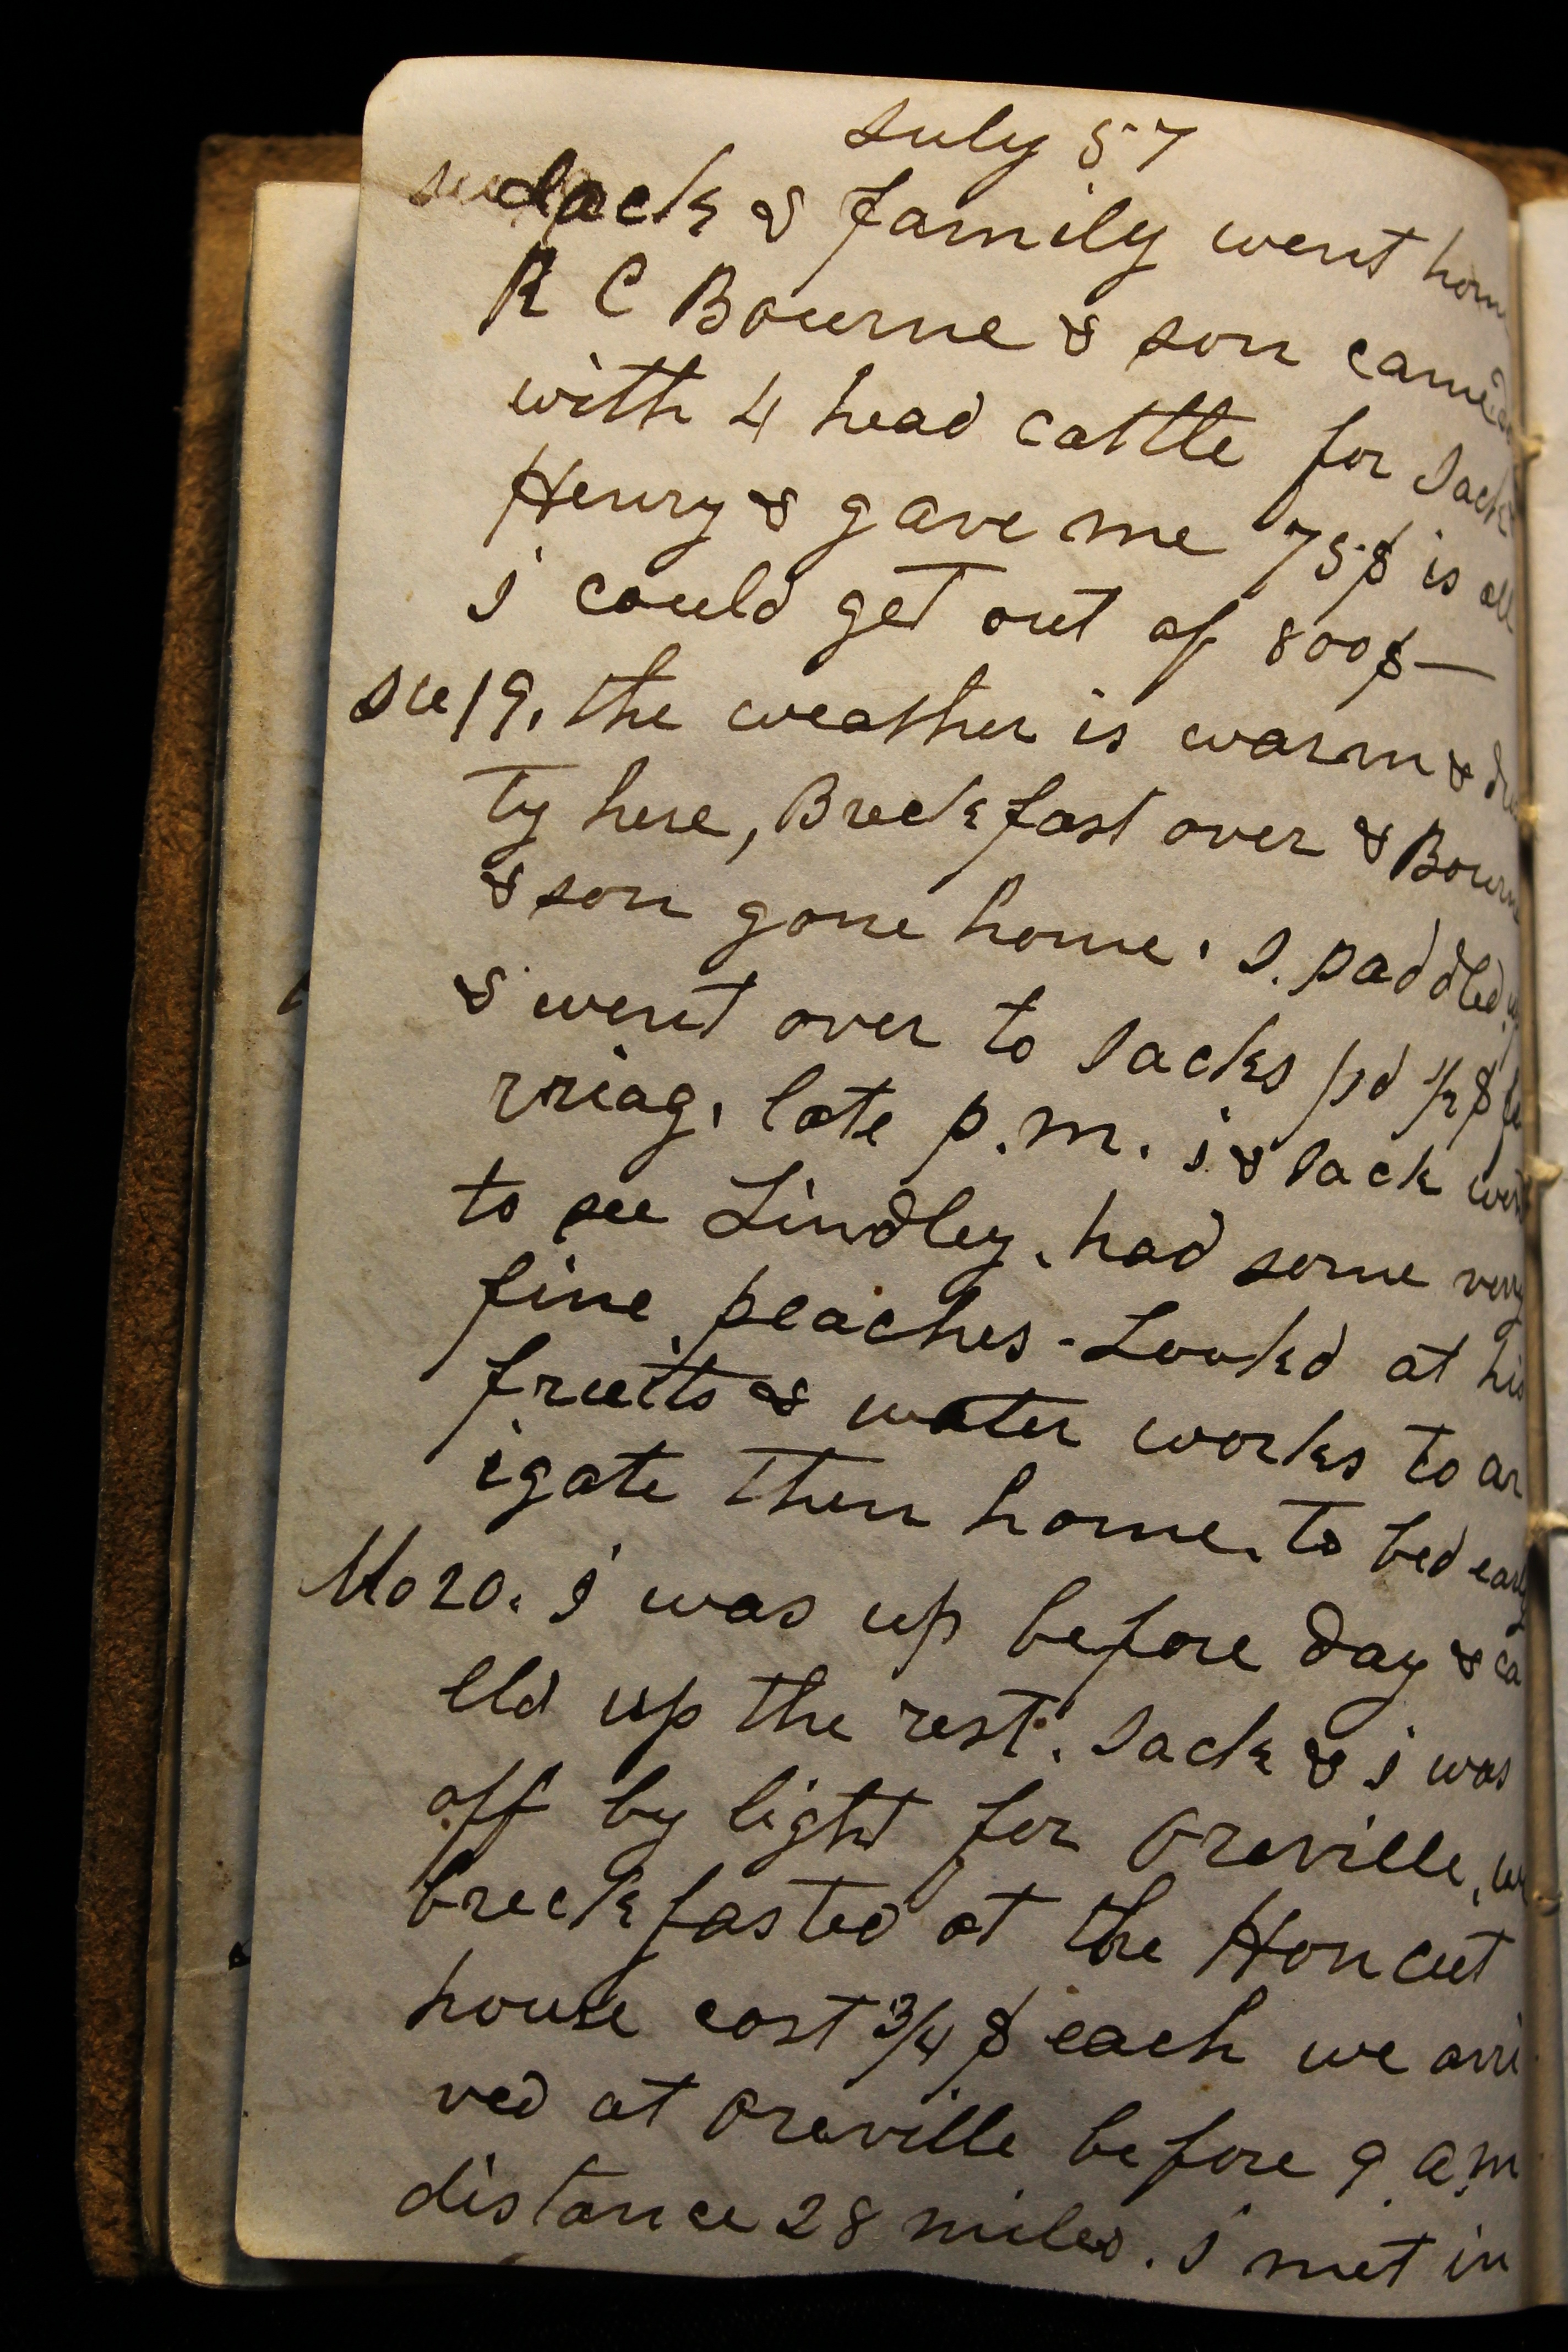 July 57
Jack & family went hom
R C Bourne & son came
with 4 head cattle for Jack
Henry & gave me 75$ is all
i could get out of 800$—
Su 19, the weather is warm & du
ty here, Breckfast over & Bourn
& son gone home. I. paddled
& went over to Jacks pd ½$ fe
rriag, late p.m. i & Jack went
to see Lindley, had some very
fine peaches - Lookd at his
fruits & water works to ar
igate then home. to bed early
Mo 20. i was up before day & ca
lld up the rest. Jack & i was
off by light for Oreville, we
breckfasted at the Honcut
house cost ¾ $ each we arri
ved at Oreville before 9 a,m
distance 28 miles. i met in